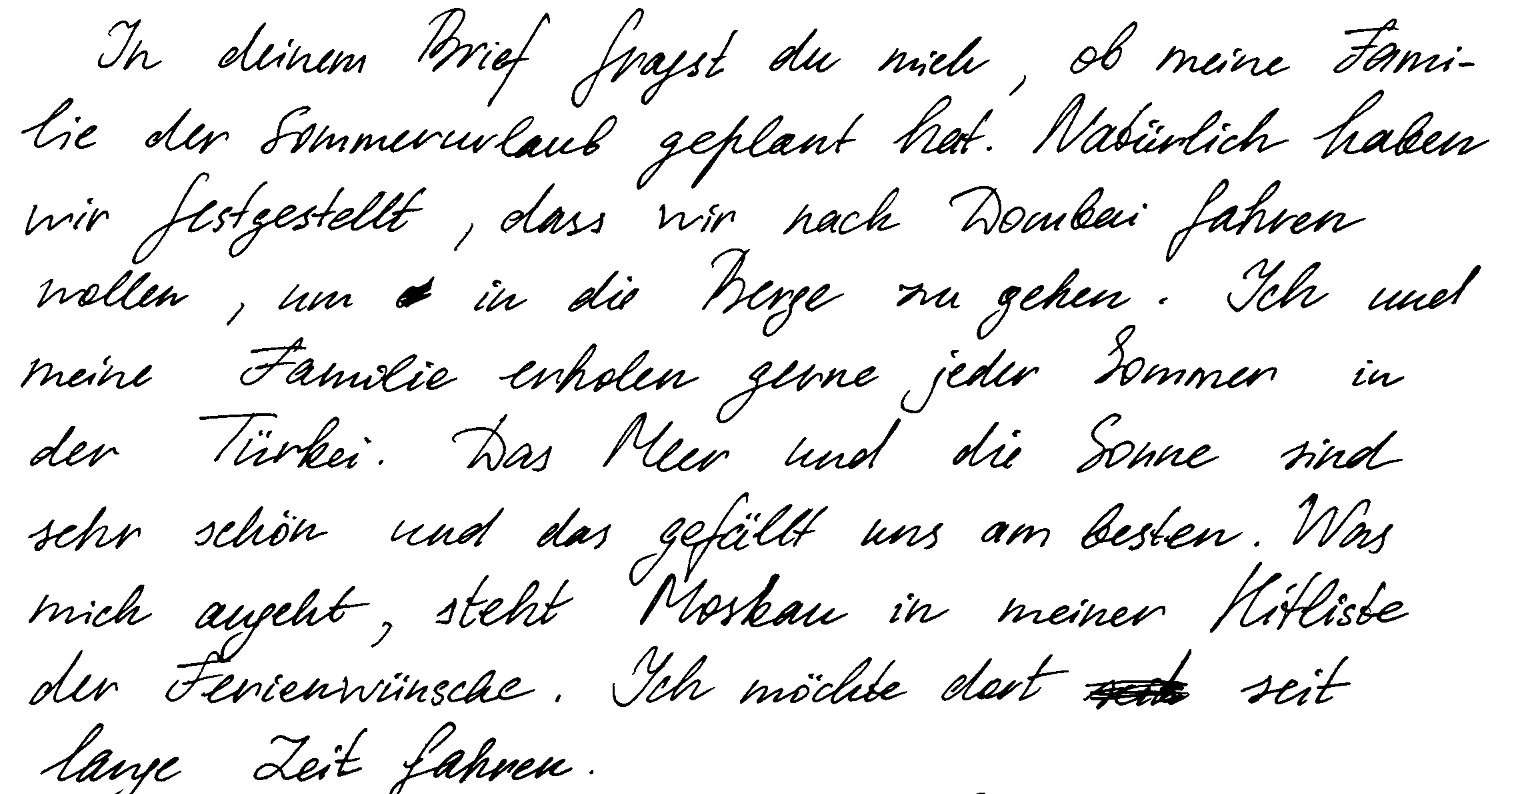 In deinem Brief fragst du mich, ob meine Fami-
lie der Sommerurlaub geplant hat. Natürlich haben
wir festgestellt, dass wir nach Dombai fahren
wollen, um in die Berge zu gehen. Ich und
meine Familie erholen gerne jeder Sommer in
der Türkei. Das Meer und die Sonne sind
sehr schön und das gefällt uns am besten. Was
mich angeht, steht Moskau in meiner Hitliste
der Ferienwünsche. Ich möchte dort seit
lange Zeit fahren.